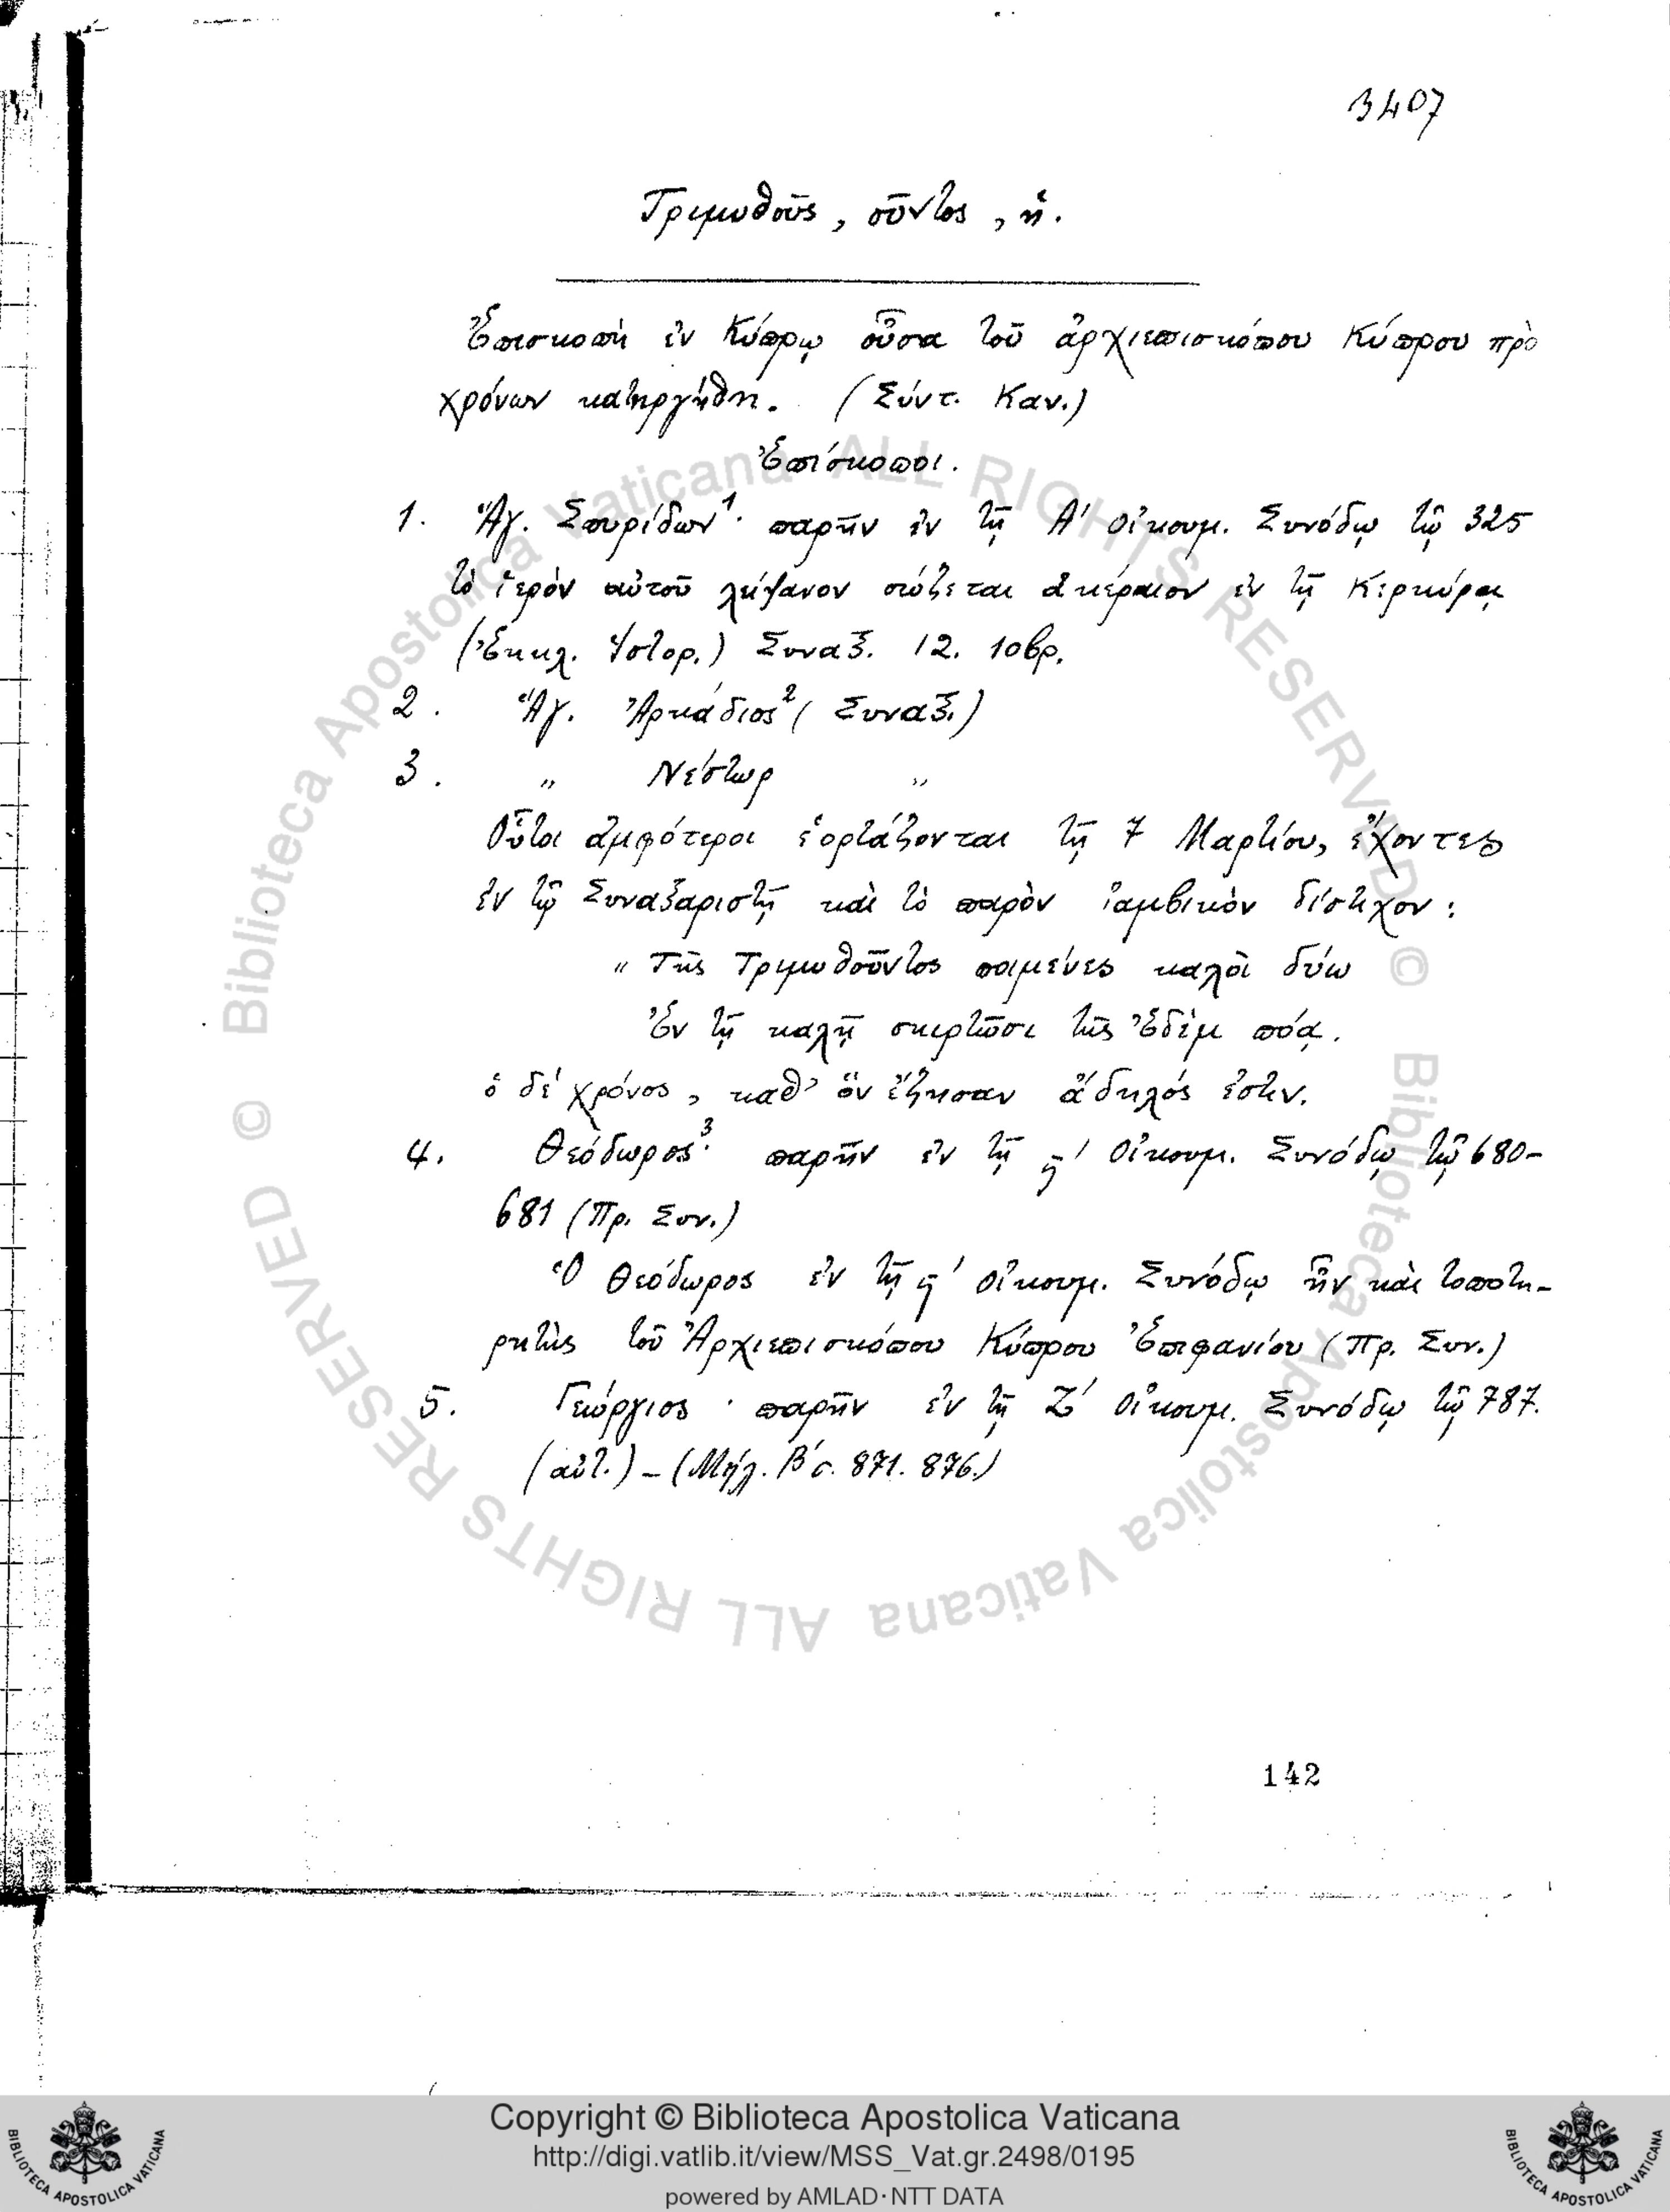 3407
Τριμυθοῦς, οῦντος, ἡ.
Ἐπισκοπὴ ἐν Κύπρῳ οὖσα τοῦ ἀρχιεπισκόπου Κύπρου πρὸ
χρόνων κατηργήθη. (Σύντ. Καν.)
Ἐπίσκοποι.
1. Ἅγ. Σπυρίδων¹· παρῆν ἐν τῇ Α' Οἰκουμ. Συνόδῳ τῷ 325
τὸ ἱερόν αὐτοῦ λείψανον σώζεται ἀκέραιον ἐν τῇ Κερκύρᾳ
(Ἐκκλ. Ἱστορ.) Συναξ. 12. 10βρ.
2. Ἅγ. Ἀρκάδιος² (Συναξ.)
3. " Νέστωρ "
Οὗτοι ἀμφότεροι ἑορτάζονται τῇ 7 Μαρτίου, ἔχοντες
ἐν τῷ Συναξαριστῇ καὶ τὸ παρὸν ἰαμβικὸν δίστιχον:
" Τῆς Τριμυθοῦντος ποιμένες καλοὶ δύω
Ἐν τῇ καλῇ σκιρτῶσι τῆς Ἐδὲμ πόᾳ.
ὁ δέ χρόνος, καθ' ὅν ἔζησαν ἄδηλός ἐστιν.
4. Θεόδωρος³· παρῆν ἐν τῇ ϛ' Οἰκουμ. Συνόδῳ τῷ 680-
681 (Πρ. Συν.)
Ὁ Θεόδωρος ἐν τῇ ϛ' Οἰκουμ. Συνόδῳ ἦν καὶ τοποτη-
ρητὴς τοῦ Ἀρχιεπισκόπου Κύπρου Ἐπιφανίου (Πρ. Συν.)
5. Γεώργιος · παρῆν ἐν τῇ Ζ' Οἰκουμ. Συνόδῳ τῷ 787.
(αὐτ.) – (Μήλ. Β' σ. 871. 876.)
142
© Biblioteca Apostolica Vaticana ALL RIGHTS RESERVED © Biblioteca Apostolica Vaticana ALL RIGHTS RESERVED
Copyright © Biblioteca Apostolica Vaticana
http://digi.vatlib.it/view/MSS_Vat.gr.2498/0195
powered by AMLAD·NTT DATA
BIBLIOTECA APOSTOLICA VATICANA
BIBLIOTECA APOSTOLICA VATICANA